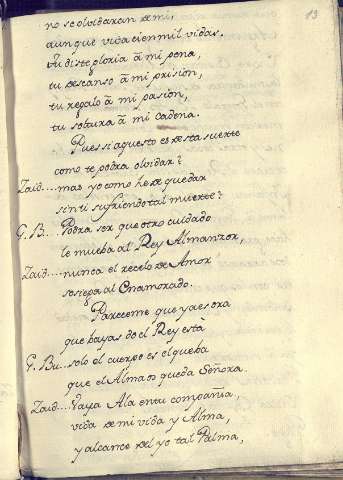 13
no se olvidaran de mi,
aunque vida cien mil vidas.
tu diste gloria â mi pena,
tu descanso â mi prision,
tu regalo â mi pasion,
tu soltura â mi cadena.
Pues si aquesto es desta suerte
como te podra olvidar?
Zaid.... mas yo como he de quedar
sin ti sufriendo tal muerte?
G. B... Podra ser que otro cuidado
le mueba al Rey Almanzor,
Zaid.... nunca el recelo de Amor
sosiega al Enamorado.
Pareceme que ya es ora
que bayas do el Rey està
G. Bu.. solo el cuerpo es el que ba
que el Alma os queda Señora.
Zaid.... Vaya Ala en tu compañia,
vida de mi vida y Alma,
y alcance del yo tal Palma,